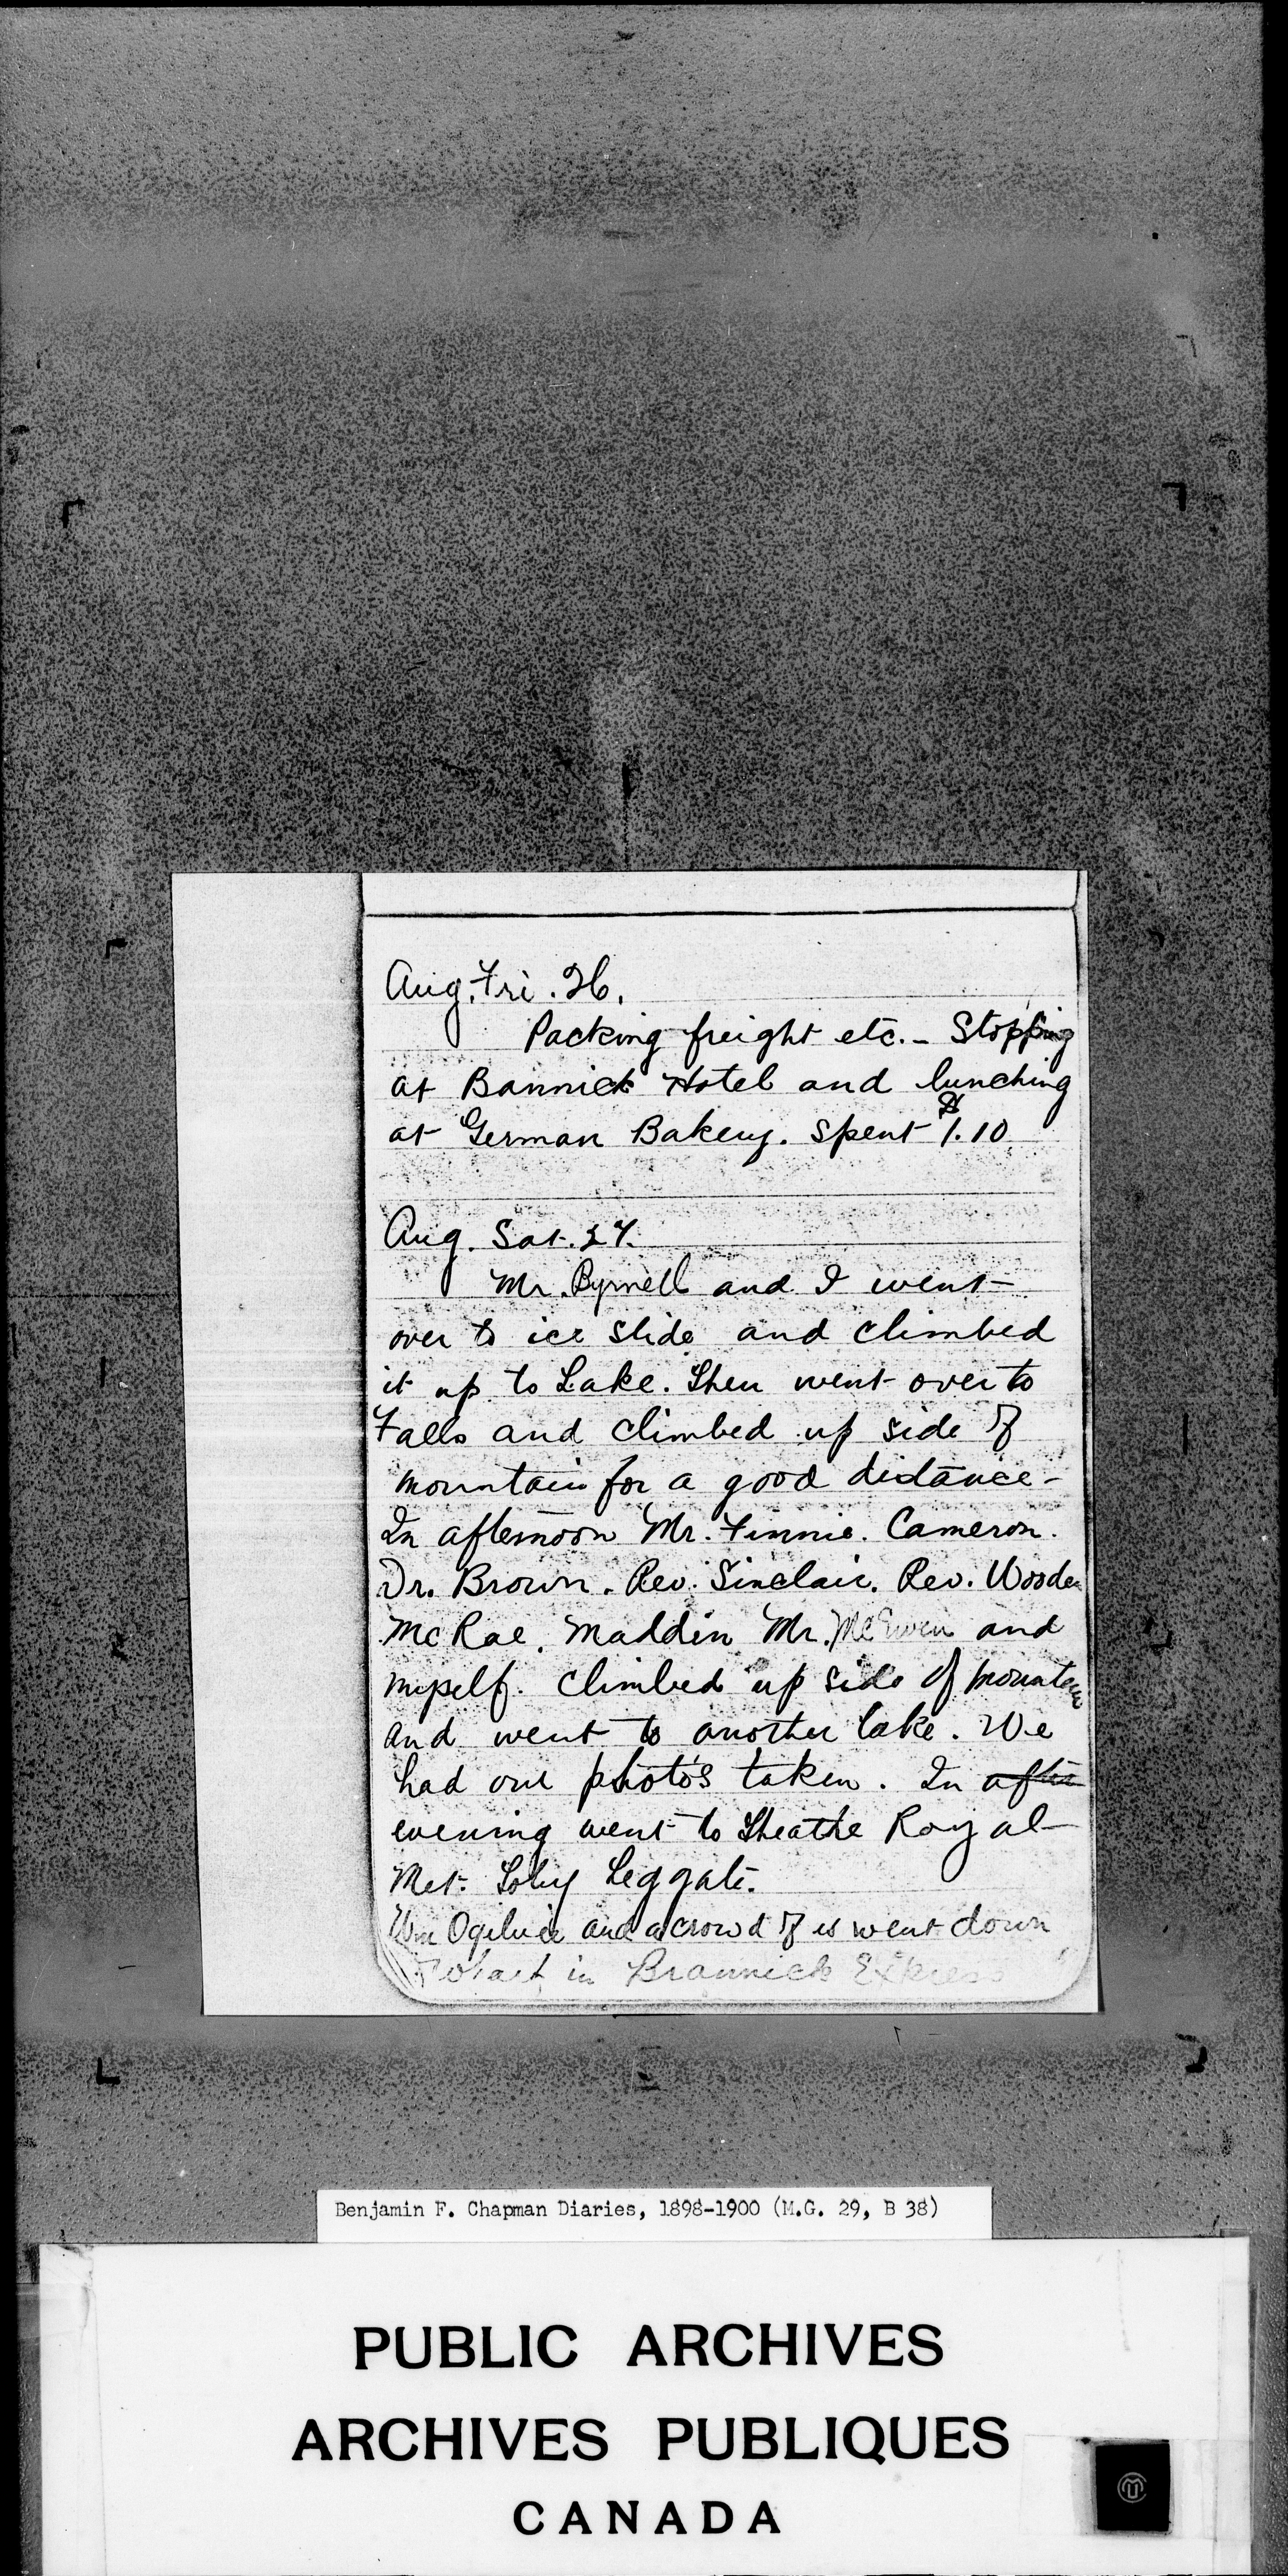 Aug. Fri. 26.
Packing freight etc. - Stopping
at Bannick Hotel and lunching
at German Bakery. Spent $1.10
Aug. Sat. 27.
Mr. Byrnell and I went
over to ice slide and climbed
it up to Lake. Then went over to
Falls and climbed up side of
mountain for a good distance -
In afternoon Mr. Finnie. Cameron.
Dr. Brown. Rev. Sinclair. Rev. Wooden
McRae. Maddin Mr. McEwen and
myself. climbed up side of mountain
and went to another lake. We
had our photo's taken. In after
evening went to Theathe Royal
Met. Leggate.
Wm Ogilvie and a crowd of us went down
in Brannick Express
Benjamin F. Chapman Diaries, 1898-1900 (M.G. 29, B 38)
PUBLIC ARCHIVES
ARCHIVES PUBLIQUES
CANADA